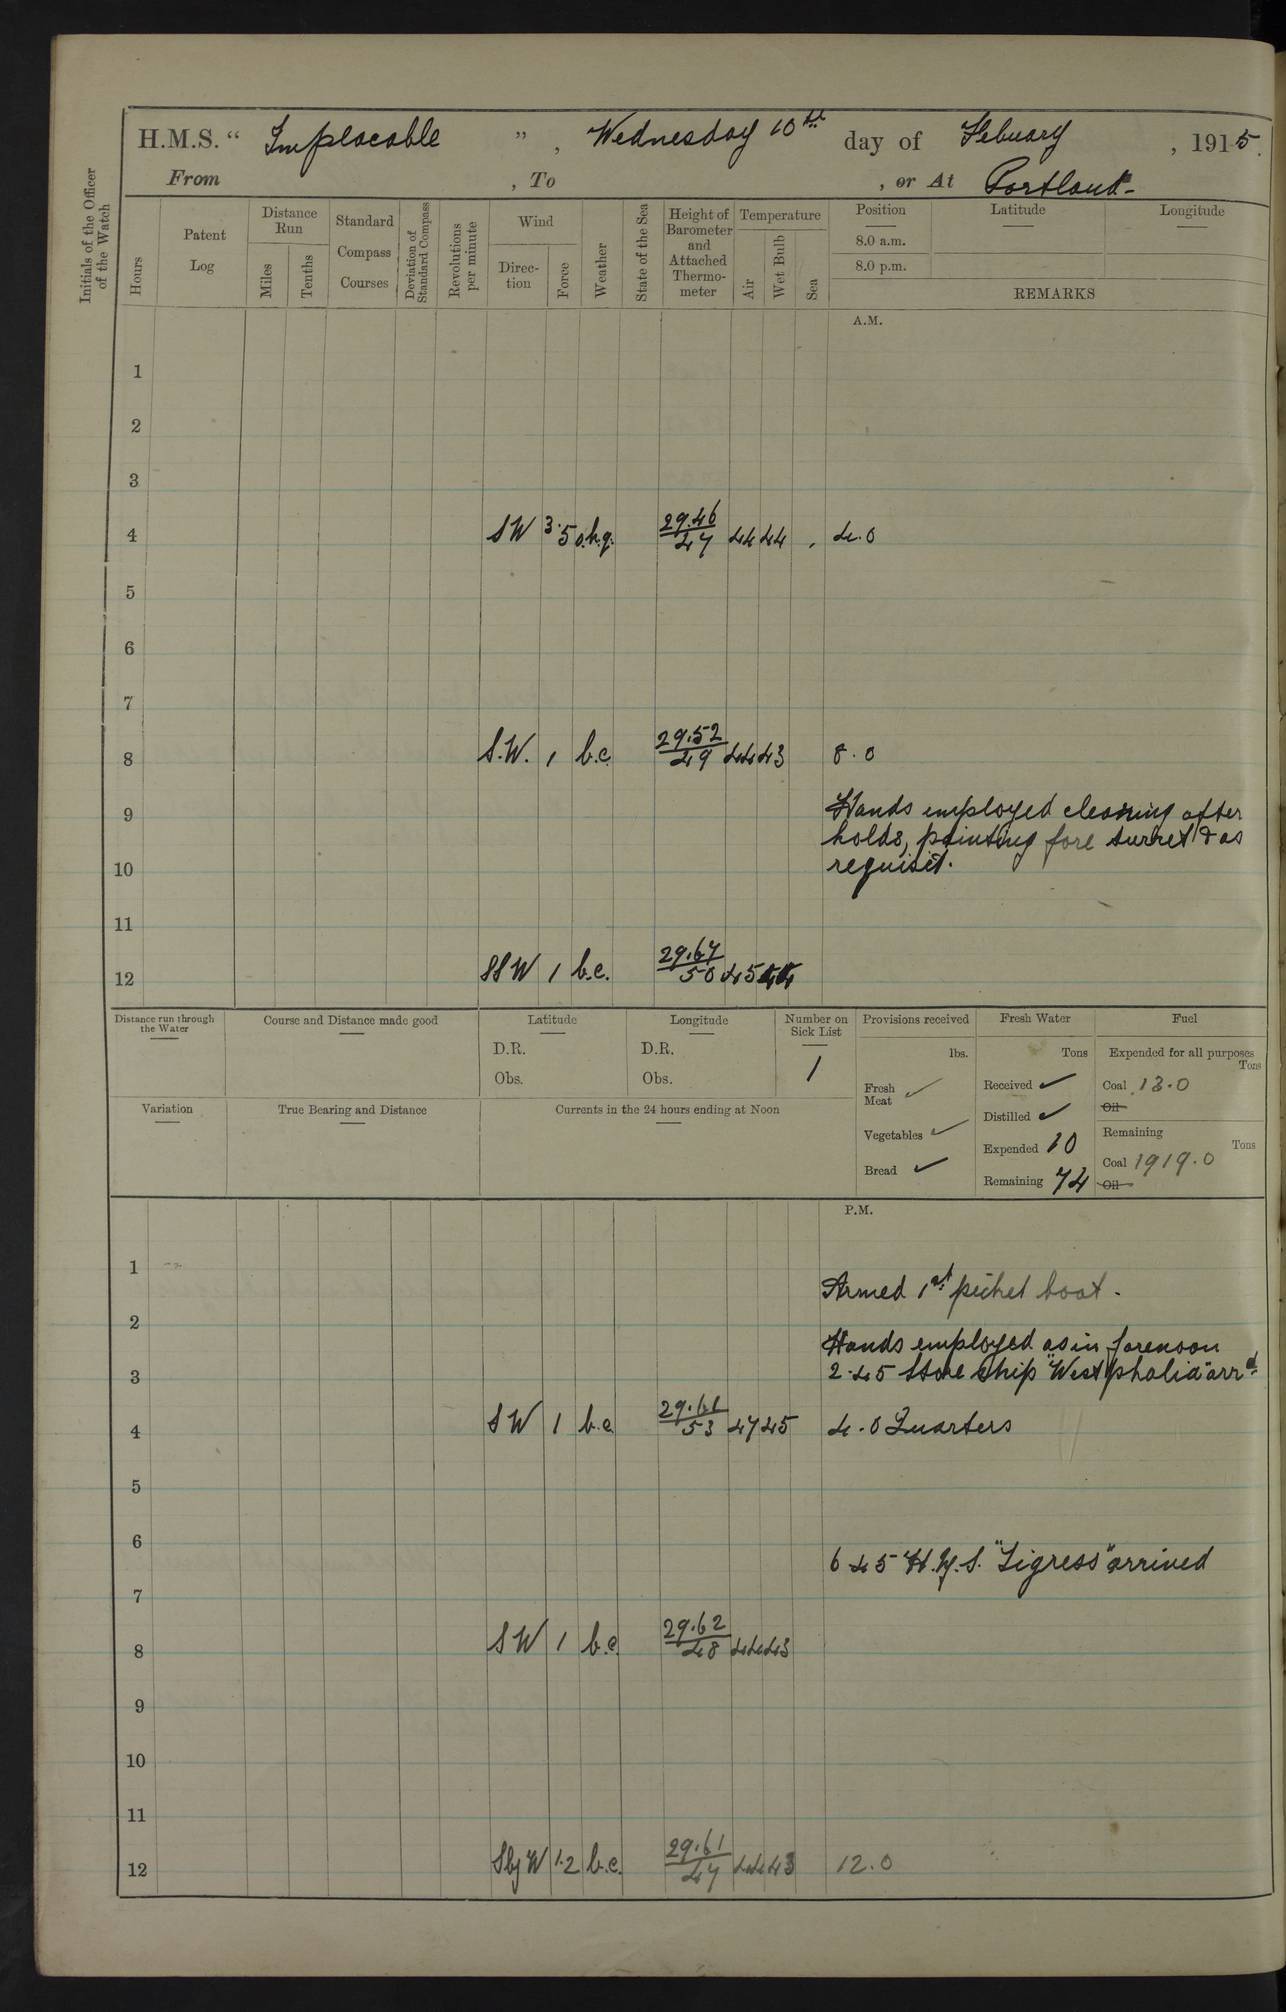 H.M.S. “ Implacable ” , Wednesday 10th day of Febuary , 1915.
From , To , or At Portland-
Initials of the Officer of the Watch
Hours
Patent Log
Distance Run
Miles
Tenths
Standard Compass Courses
Deviation of Standard Compass
Revolutions per minute
Wind
Direc-tion
Force
Weather
State of the Sea
Height of Barometer and Attached Thermo-meter
Temperature
Air
Wet Bulb
Sea
Position
8.0 a.m.
8.0 p.m.
Latitude
Longitude
REMARKS
A.M.
1
2
3
4 SW 3.5 29.46 47 44 44 4.0
5
6
7
8 S.W. 1 b.c. 29.52 49 44 43 8.0
9 Hands employed cleaning after
holds, painting fore turret & as
10 requisit.
11
12 SSW 1 b.c. 29.67 50 45 44
Distance run through the Water
Course and Distance made good
Latitude
D.R.
Obs.
Longitude
D.R.
Obs.
Number on Sick List
1
Provisions received
lbs.
Fresh Meat ✓
Vegetables ✓
Bread ✓
Fresh Water
Tons
Received ✓
Distilled ✓
Expended 10
Remaining 74
Fuel
Expended for all purposes
Tons
Coal 13.0
Oil
Remaining
Tons
Coal 1919.0
Oil
Variation
True Bearing and Distance
Currents in the 24 hours ending at Noon
P.M.
1
Armed 1st picket boat.
2
Hands employed as in forenoon
3 2.45 Store ship "Westphalia" arrd.
4 SW 1 b.c. 29.61 53 47 45 4.0 Quarters
5
6
6 45 H.M.S. "Tigress" arrived
7
8 SW 1 b.c. 29.62 48 44 43
9
10
11
12 SbyW 1.2 b.c. 29.61 47 44 43 12.0